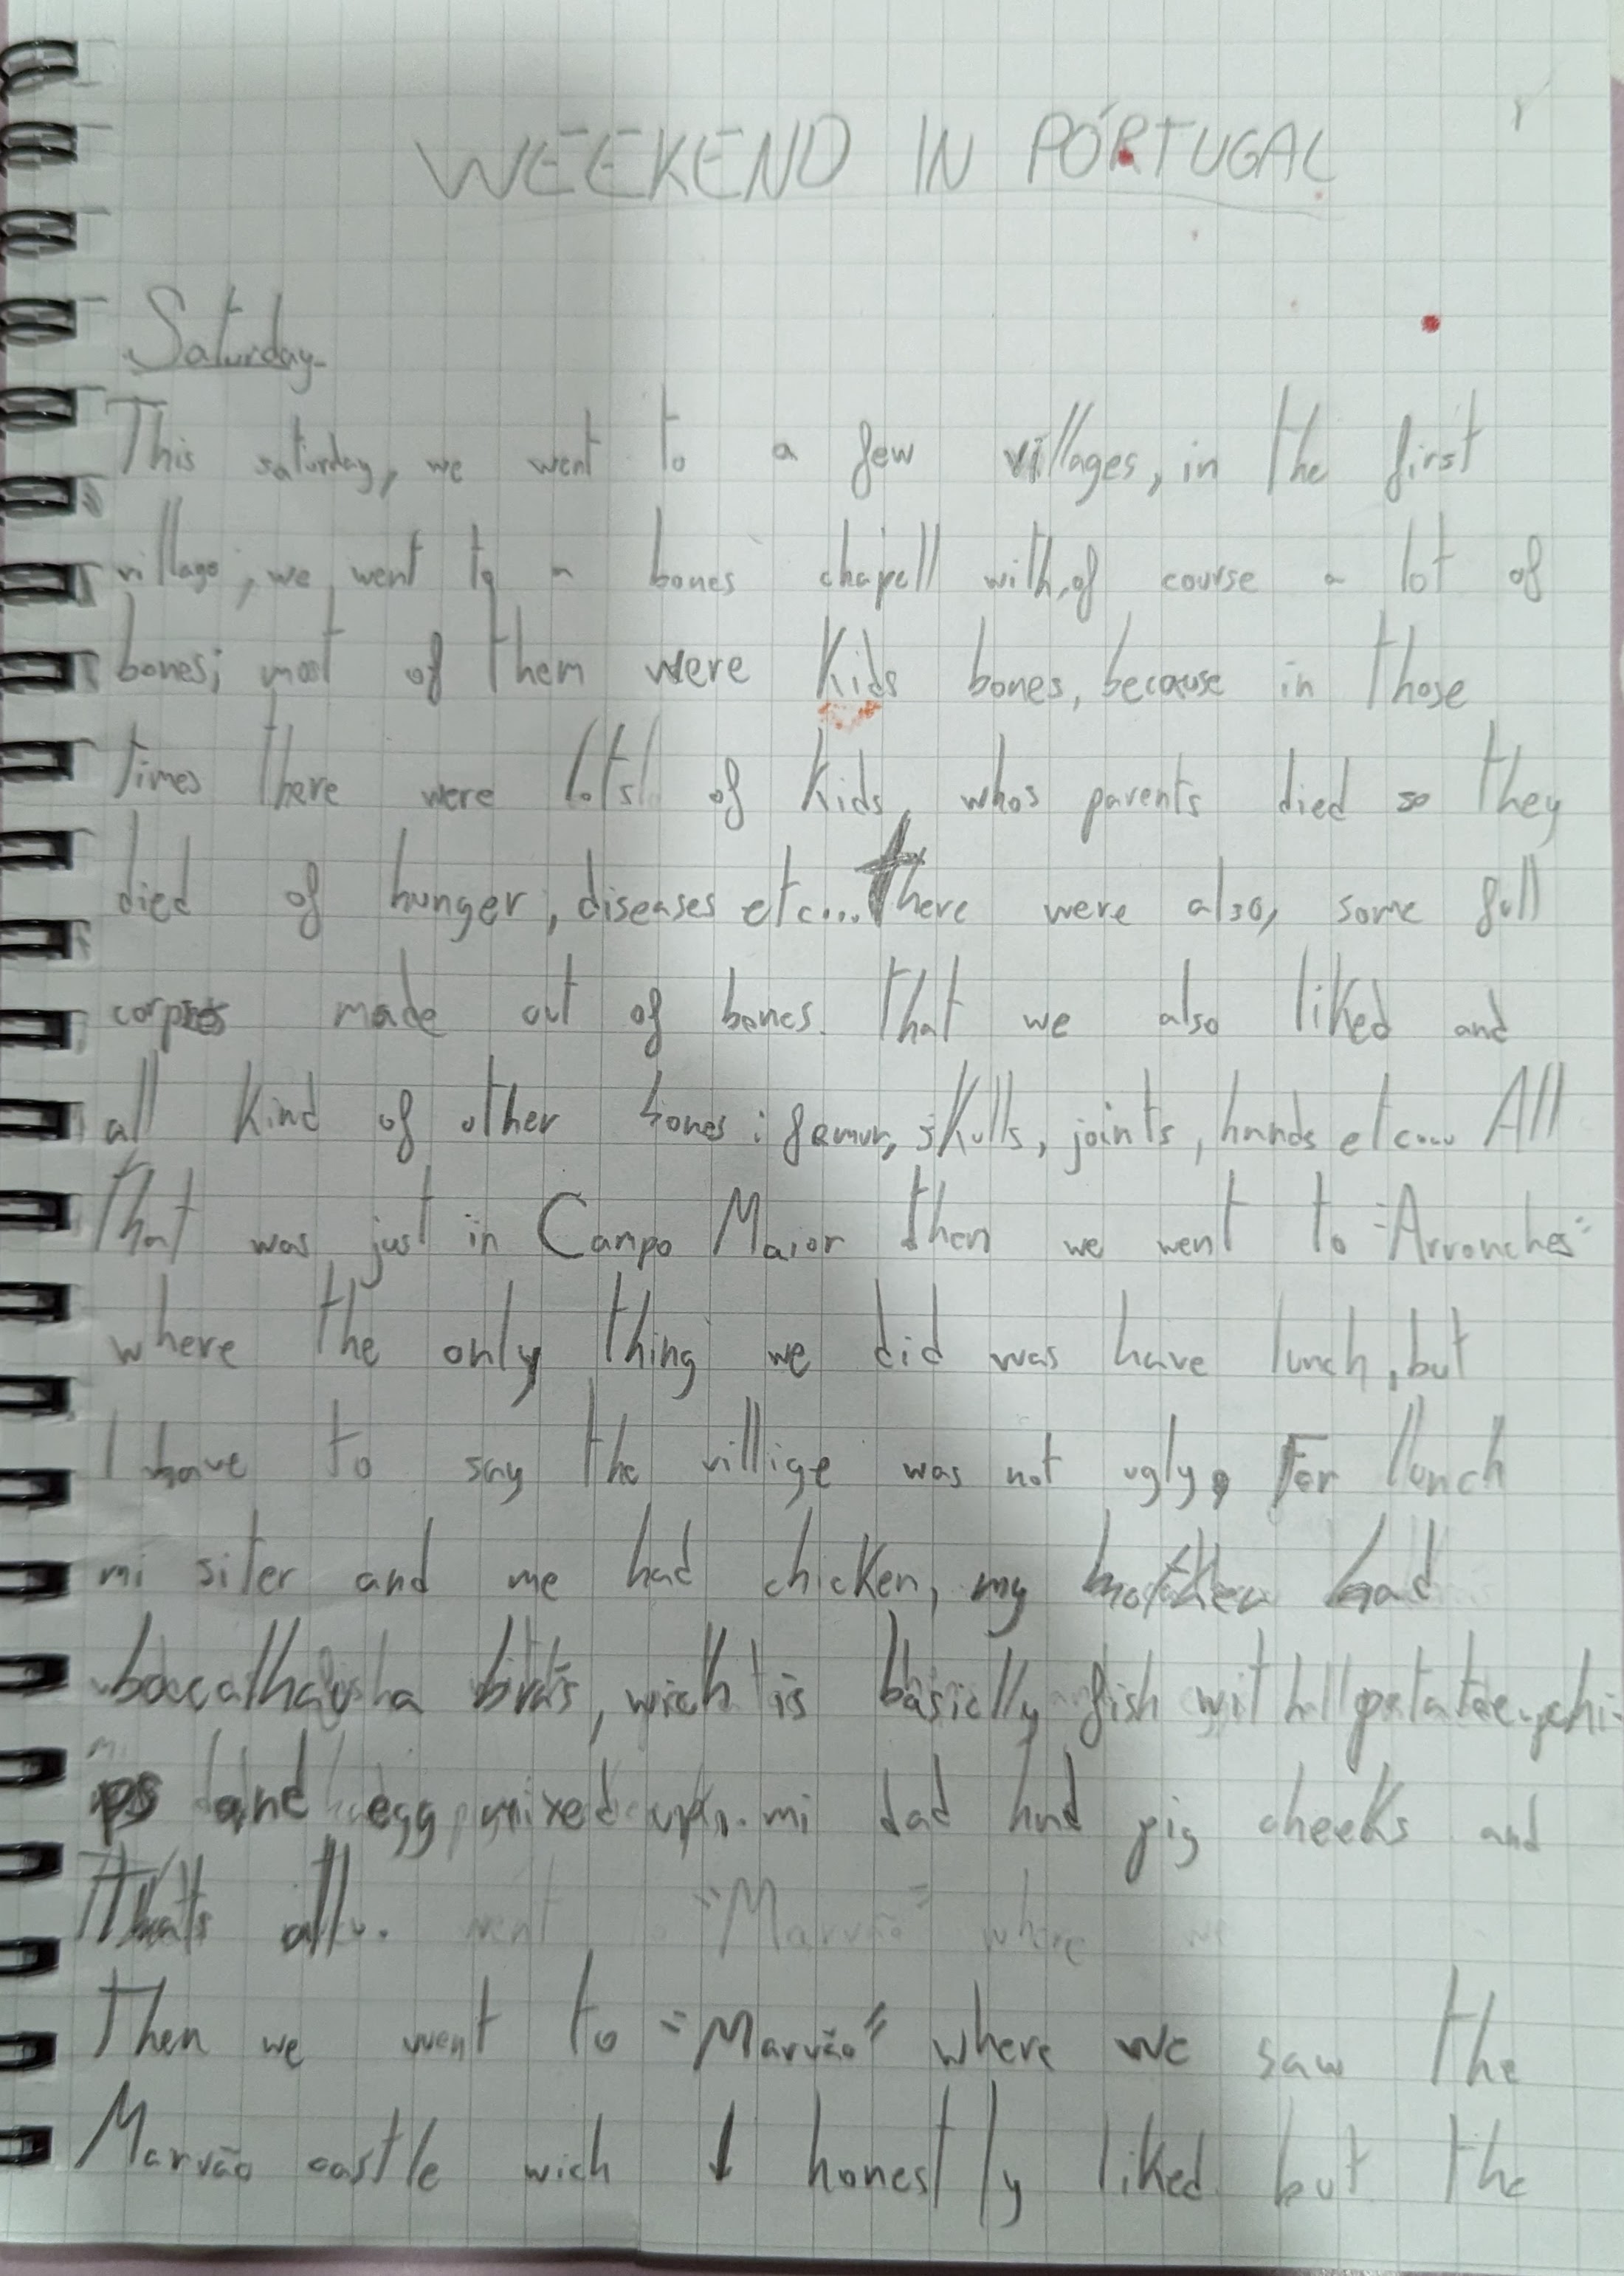 WEEKEND IN PORTUGAL
Saturday
This saturday, we went to a few villages, in the first
village, we went to a bones chapell with, of course a lot of
bones; most of them were kids bones, because in those
times there were lots of kids, whos parents died so they
died of hunger, diseases etc... there were also, some full
corpses made out of bones. that we also liked and
all kind of other bones: femur, skulls, joints, hands etc.... All
that was just in Campo Maior then we went to "Arronches"
where the only thing we did was have lunch, but
I have to say the villige was not ugly, For lunch
mi siter and me had chicken, my mother had
bacalhau a brás, wich is basiclly fish with potatoe chi-
ps and egg mixed up. mi dad had pig cheeks and
thats all.
Then we went to "Marvão" where we saw the
Marvão castle wich I honestly liked but the